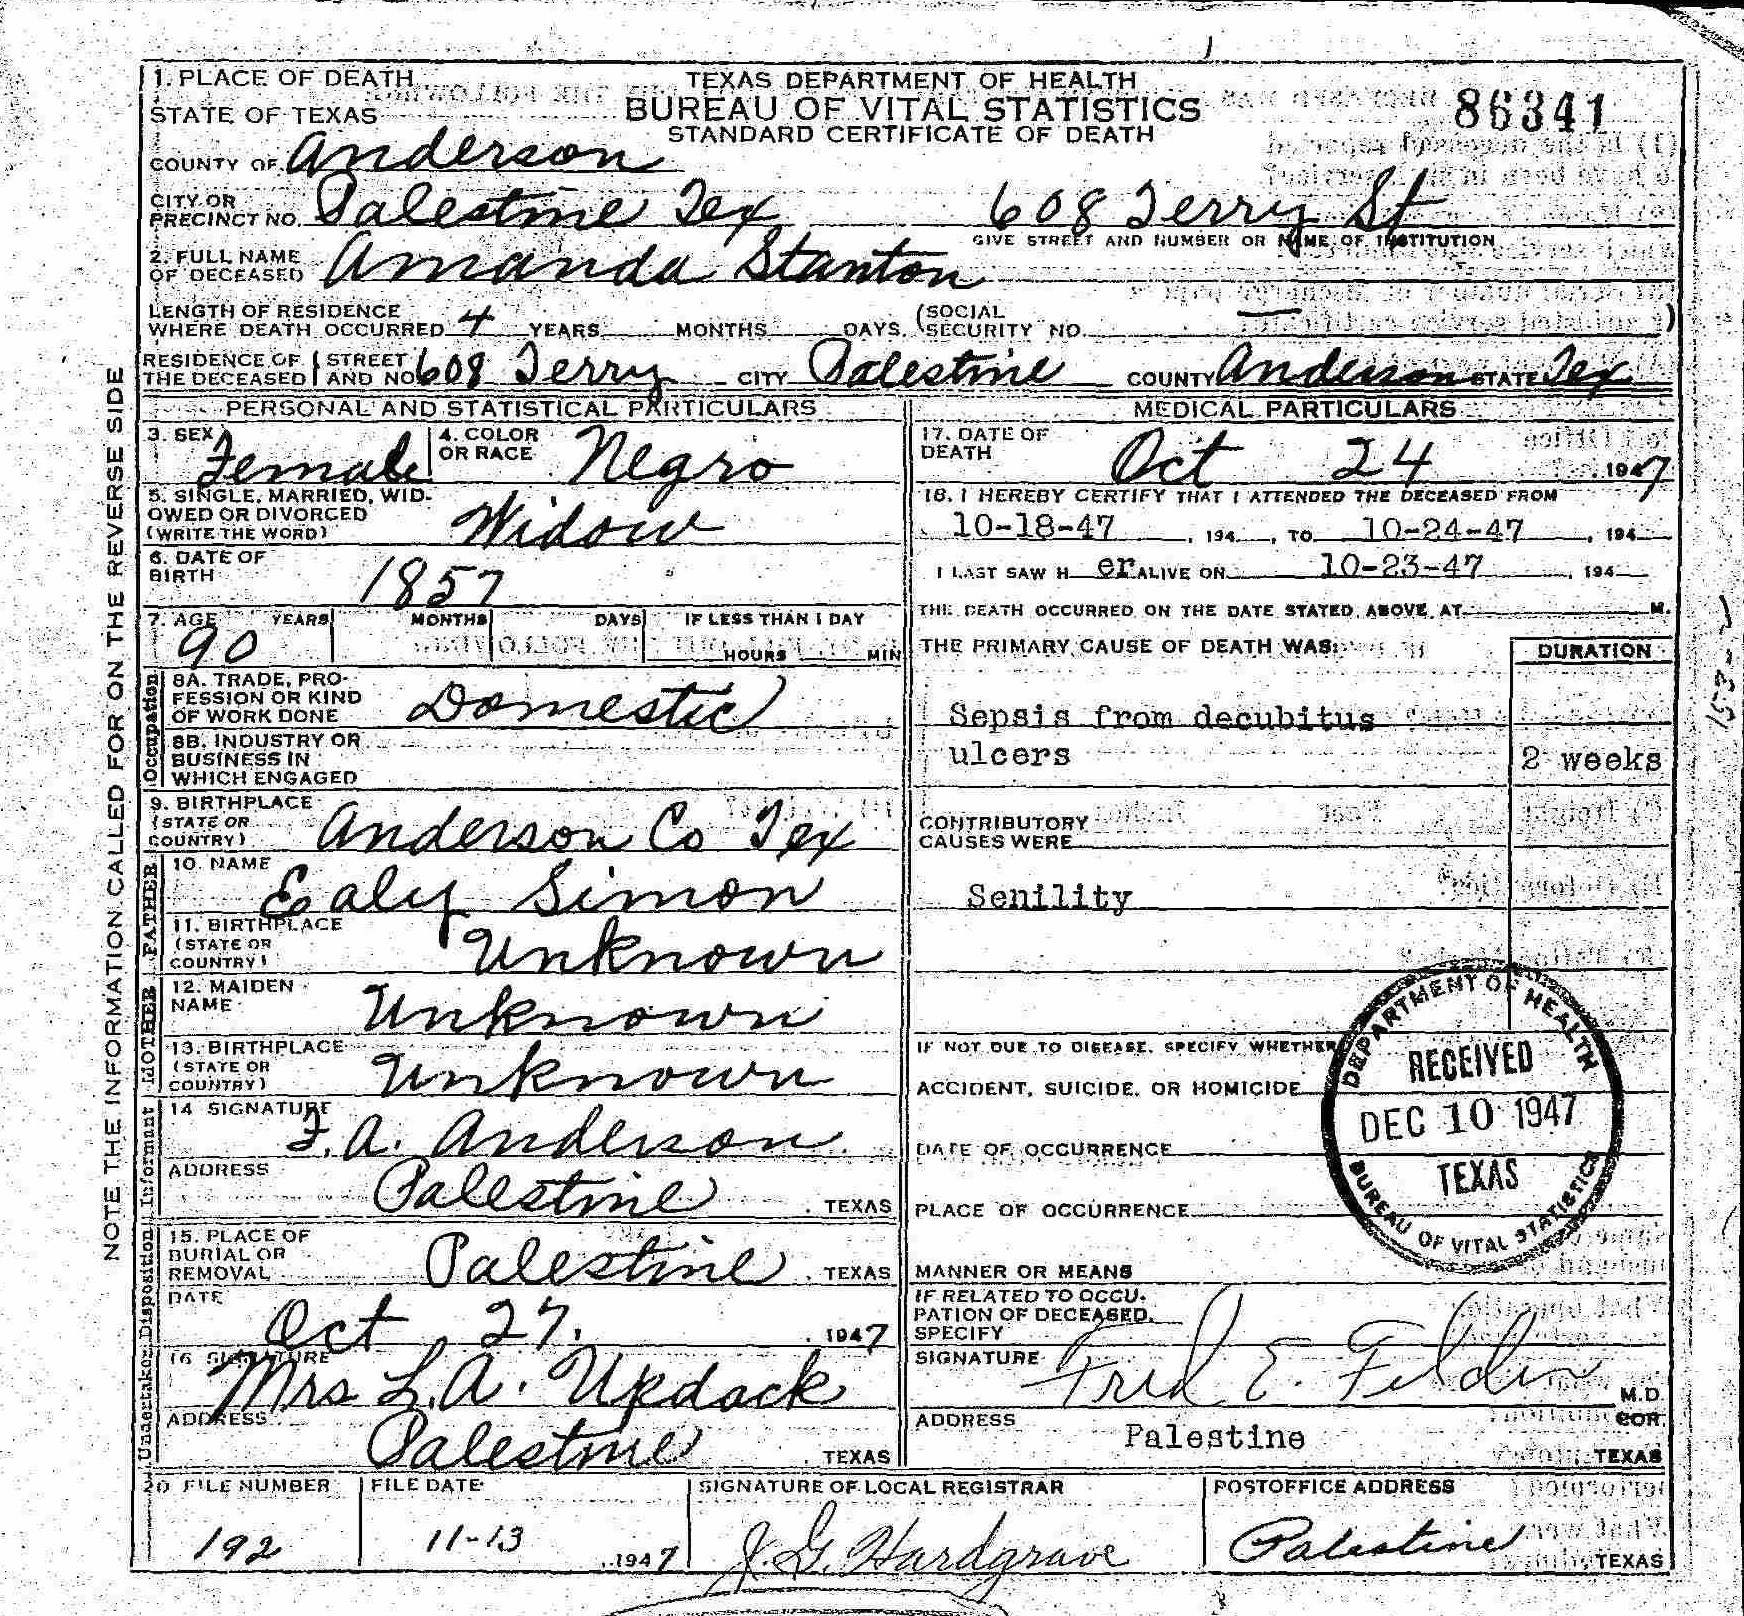 1. PLACE OF DEATH
STATE OF TEXAS
TEXAS DEPARTMENT OF HEALTH
BUREAU OF VITAL STATISTICS
STANDARD CERTIFICATE OF DEATH
86341
COUNTY OF Anderson
CITY OR PRECINCT NO. Palestine Tex 608 Terry St
GIVE STREET AND NUMBER OR NAME OF INSTITUTION
2. FULL NAME OF DECEASED Amanda Stanton
LENGTH OF RESIDENCE WHERE DEATH OCCURRED 4 YEARS MONTHS DAYS. (SOCIAL SECURITY NO. — )
RESIDENCE OF THE DECEASED { STREET AND NO. 608 Terry CITY Palestine COUNTY Anderson STATE Tex
NOTE THE INFORMATION CALLED FOR ON THE REVERSE SIDE
PERSONAL AND STATISTICAL PARTICULARS
3. SEX Female
4. COLOR OR RACE Negro
5. SINGLE, MARRIED, WIDOWED OR DIVORCED (WRITE THE WORD) Widow
6. DATE OF BIRTH 1857
7. AGE YEARS MONTHS DAYS IF LESS THAN 1 DAY
90 HOURS MIN
Occupation
8A. TRADE, PROFESSION OR KIND OF WORK DONE Domestic
8B. INDUSTRY OR BUSINESS IN WHICH ENGAGED
9. BIRTHPLACE (STATE OR COUNTRY) Anderson Co Tex
FATHER
10. NAME Ealy Simon
11. BIRTHPLACE (STATE OR COUNTRY) Unknown
MOTHER
12. MAIDEN NAME Unknown
13. BIRTHPLACE (STATE OR COUNTRY) Unknown
Informant
14 SIGNATURE F. A. Anderson
ADDRESS Palestine TEXAS
Undertaker Disposition
15. PLACE OF BURIAL OR REMOVAL Palestine TEXAS
DATE Oct 27, 1947
16 SIGNATURE Mrs L. A. Updack
ADDRESS Palestine TEXAS
MEDICAL PARTICULARS
17. DATE OF DEATH Oct 24 1947
18. I HEREBY CERTIFY THAT I ATTENDED THE DECEASED FROM
10-18-47, 194 , TO 10-24-47, 194
I LAST SAW H er ALIVE ON 10-23-47, 194
THE DEATH OCCURRED ON THE DATE STATED ABOVE AT M.
THE PRIMARY CAUSE OF DEATH WAS: DURATION
Sepsis from decubitus
ulcers 2 weeks
CONTRIBUTORY CAUSES WERE
Senility
IF NOT DUE TO DISEASE, SPECIFY WHETHER
ACCIDENT, SUICIDE, OR HOMICIDE
DATE OF OCCURRENCE
PLACE OF OCCURRENCE
MANNER OR MEANS
IF RELATED TO OCCUPATION OF DECEASED, SPECIFY
SIGNATURE Fred E. Felder M.D.
COR.
ADDRESS Palestine TEXAS
DEPARTMENT OF HEALTH
RECEIVED
DEC 10 1947
TEXAS
BUREAU OF VITAL STATISTICS
20 FILE NUMBER FILE DATE SIGNATURE OF LOCAL REGISTRAR POSTOFFICE ADDRESS
192 11-13 1947 J. G. Hardgrave Palestine, TEXAS